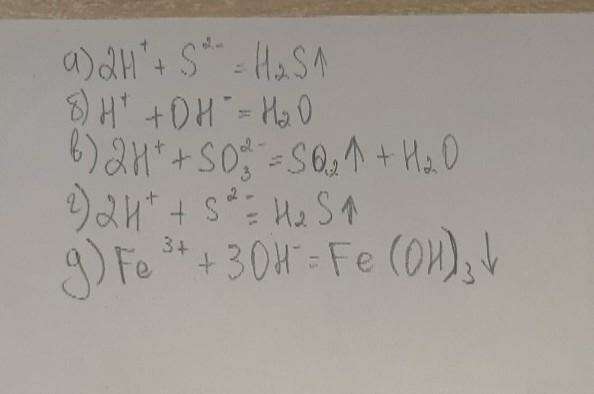 а) 2H⁺ + S²⁻ = H₂S↑
б) H⁺ + OH⁻ = H₂O
в) 2H⁺ + SO₃²⁻ = SO₂↑ + H₂O
г) 2H⁺ + S²⁻ = H₂S↑
д) Fe³⁺ + 3OH⁻ = Fe(OH)₃↓